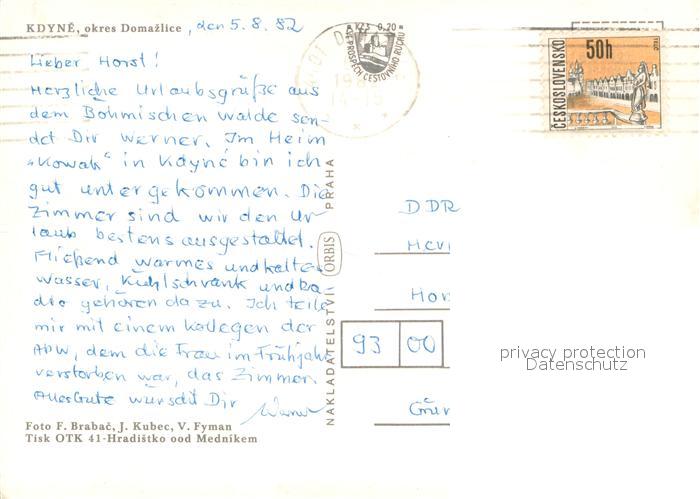 KDYNĚ, okres Domažlice, den 5.8.82
Lieber Horst!
Herzliche Urlaubsgrüße aus
dem Böhmischen walde sen-
det Dir Werner. Im Heim
"Kowak" in Kdyně bin ich
gut untergekommen. Die
Zimmer sind wir den Ur
laub bestens ausgestaltet.
Fließend warmes und kaltes
wasser, Kühlschrank und ba-
die gehören dazu. Ich teile
mir mit einem kollegen der
ADW, dem die Frau im Frühjahr
verstorben war, das Zimmer.
Alles Gute wünscht Dir
Werner
Foto F. Brabač, J. Kubec, V. Fyman
Tisk OTK 41-Hradištko ood Medníkem
NAKLADATELSTVÍ ORBIS PRAHA
KčS 0,20
VE PROSPĚCH CESTOVNÍHO RUCHU
ČESKOSLOVENSKO
50h
DDR
Hor
93 00
privacy protection
Datenschutz